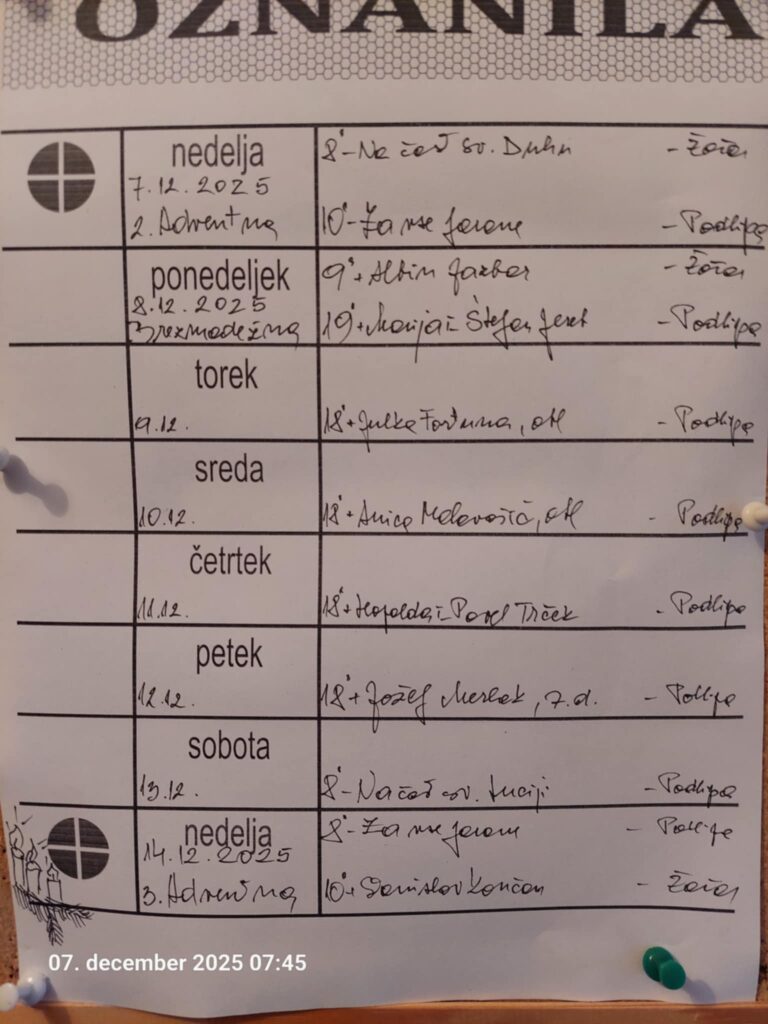 OZNANILA
nedelja
7.12.2025
2. Adventna
8°- Na čast sv. Duhu - Žažar
10°- Za vse farane - Podlipa
ponedeljek
8.12.2025
Brezmadežna
9°+ Albin Jazbar - Žažar
19°+ Marija i Štefan - Podlipa
torek
9.12.
18°+ Julka Fortuna, obl - Podlipa
sreda
10.12.
18°+ Anica, obl - Podlipa
četrtek
11.12.
18°+ Leopolda i Pavel Trček - Podlipa
petek
12.12.
18°+ Jožef Merlak, 7.d. - Podlipa
sobota
13.12.
8°- Na čast sv. Luciji - Podlipa
nedelja
14.12.2025
3. Adventna
8°- Za vse farane - Podlipa
10°+ Stanislav Končan - Žažar
07. december 2025 07:45